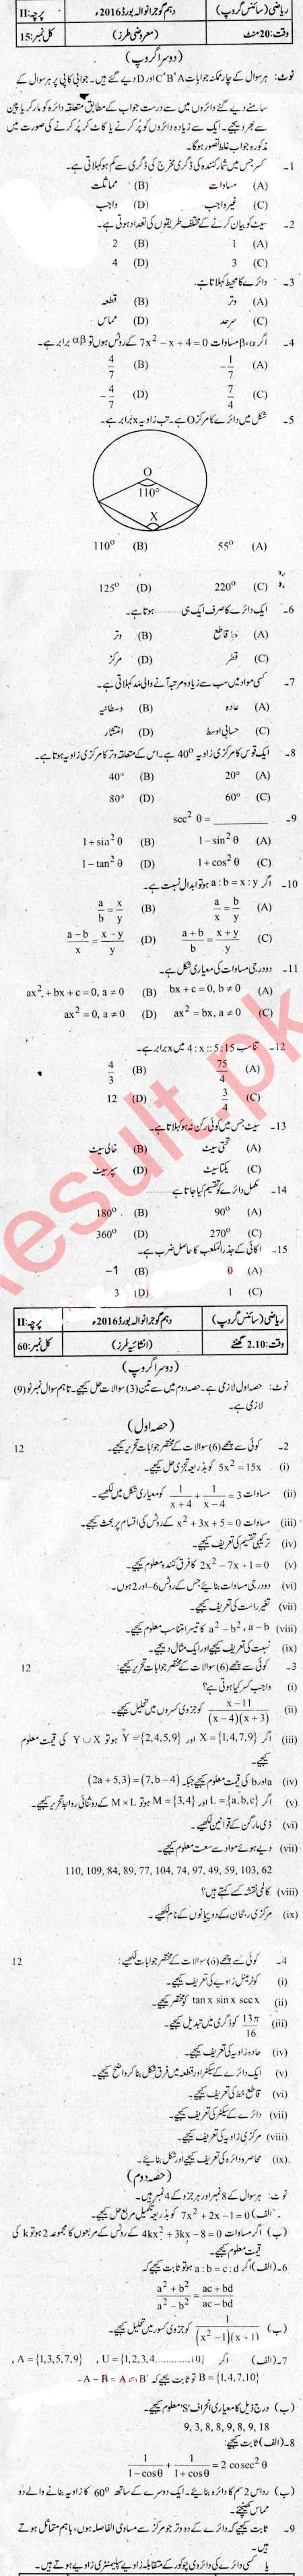 ریاضی (سائنس گروپ) دہم گوجرانوالہ بورڈ 2016ء پرچہ: II
وقت: 20 منٹ (معروضی طرز) کل نمبر: 15
(دوسرا گروپ)
نوٹ: ہر سوال کے چار ممکنہ جوابات C'B'A اور D دیے گئے ہیں۔ جوابی کاپی پر ہر سوال کے
سامنے دیے گئے دائروں میں سے درست جواب کے مطابق متعلقہ دائرہ کو مارکر یا پین
سے بھر دیجیے۔ ایک سے زیادہ دائروں کو پُر کرنے یا کاٹ کر پُر کرنے کی صورت میں
مذکورہ جواب غلط تصور ہوگا۔
1۔ کسر جس میں شمار کنندہ کی ڈگری مخرج کی ڈگری سے کم ہو کہلاتی ہے۔
(A) مساوات (B) مماثلت
(C) غیر واجب (D) واجب
2۔ سیٹ کو بیان کرنے کے مختلف طریقوں کی تعداد ہوتی ہے۔
(A) 1 (B) 2
(C) 3 (D) 4
3۔ دائرے کا محیط کہلاتا ہے۔
(A) وتر (B) قطعہ
(C) سرحد (D) مماس
4۔ اگر α،β مساوات 7x² − x + 4 = 0 کے روٹس ہوں تو αβ برابر ہے۔
(A) −1/7 (B) 4/7
(C) 7/4 (D) −4/7
5۔ شکل میں دائرے کا مرکز O ہے۔ تب زاویہ x برابر ہے۔
O
110°
X
(A) 55° (B) 110°
(C) 220° (D) 125°
6۔ ایک دائرے کا صرف ایک ہی ............ ہوتا ہے۔
(A) خط قاطع (B) وتر
(C) قطر (D) مرکز
7۔ کسی مواد میں سب سے زیادہ مرتبہ آنے والی مد کہلاتی ہے۔
(A) عادہ (B) وسطانیہ
(C) حسابی اوسط (D) انتشار
8۔ ایک قوس کا مرکزی زاویہ 40° ہے۔ اس کے متعلقہ وتر کا مرکزی زاویہ ہوتا ہے۔
(A) 20° (B) 40°
(C) 60° (D) 80°
9۔ sec² θ = ________
(A) 1−sin² θ (B) 1+sin² θ
(C) 1+cos² θ (D) 1−tan² θ
10۔ اگر a : b = x : y ہو تو ابدال نسبت ہے۔
(A) a/x = b/y (B) a/b = x/y
(C) a+b/b = x+y/y (D) a−b/x = x−y/y
11۔ دو درجی مساوات کی معیاری شکل ہے۔
(A) bx + c = 0, b ≠ 0 (B) ax² + bx + c = 0, a ≠ 0
(C) ax² = bx, a ≠ 0 (D) ax² = 0, a ≠ 0
12۔ تناسب 4 : x :: 5 : 15 میں x برابر ہے۔
(A) 75/4 (B) 4/3
(C) 3/4 (D) 12
13۔ سیٹ جس میں کوئی رکن نہ ہو کہلاتا ہے۔
(A) تحتی سیٹ (B) خالی سیٹ
(C) یکتا سیٹ (D) سپر سیٹ
14۔ مکمل دائرے کو تقسیم کیا جاتا ہے ............
(A) 90° (B) 180°
(C) 270° (D) 360°
15۔ اکائی کے جذر المکعب کا حاصل ضرب ہے۔
(A) 0 (B) −1
(C) 1 (D) 3
ریاضی (سائنس گروپ) دہم گوجرانوالہ بورڈ 2016ء پرچہ: II
وقت: 2.10 گھنٹے (انشائیہ طرز) کل نمبر: 60
(دوسرا گروپ)
نوٹ: حصہ اول لازمی ہے۔ حصہ دوم میں سے تین (3) سوالات حل کیجیے۔ تاہم سوال نمبر نو (9)
لازمی ہے۔
(حصہ اول)
2۔ کوئی سے چھے (6) سوالات کے مختصر جوابات تحریر کیجیے۔ 12
(i) 5x² = 15x کو بذریعہ تجزی حل کیجیے۔
(ii) مساوات 1/x+4 + 1/x−4 = 3 کو معیاری شکل میں لکھیے۔
(iii) مساوات x² + 3x + 5 = 0 کے روٹس کی اقسام پر بحث کیجیے۔
(iv) ترکیبی تقسیم کی تعریف کیجیے۔
(v) 2x² − 7x + 1 = 0 کا فرق کنندہ معلوم کیجیے۔
(vi) دو درجی مساوات بنایئے جس کے روٹس 6− اور 2 ہوں۔
(vii) تغیر راست کی تعریف کیجیے۔
(viii) a² − b², a − b کا تیسرا متناسب معلوم کیجیے۔
(ix) نسبت کی تعریف کیجیے اور ایک مثال دیجیے۔
3۔ کوئی سے چھے (6) سوالات کے مختصر جوابات تحریر کیجیے: 12
(i) واجب کسر کیا ہوتی ہے؟
(ii) x−11/(x−4)(x+3) کو جزوی کسروں میں تحلیل کیجیے۔
(iii) اگر X = {1,4,7,9} اور Y = {2,4,5,9} ہو تو Y∪X کی قیمت معلوم
کیجیے۔
(iv) a اور b کی قیمت معلوم کیجیے جبکہ (2a+5,3) = (7,b−4)
(v) اگر L = {a,b,c} اور M = {3,4} ہو تو M×L کے دو ثنائی روابط تحریر کیجیے۔
(vi) ڈی مارگن کے قوانین لکھیے۔
(vii) دیے ہوئے مواد سے سعت معلوم کیجیے۔
110, 109, 84, 89, 77, 104, 74, 97, 49, 59, 103, 62
(viii) کالمی نقشہ کسے کہتے ہیں؟
(ix) مرکزی رجحان کے دو پیمانوں کے نام لکھیے۔
4۔ کوئی سے چھے (6) سوالات کے مختصر جوابات لکھیے: 12
(i) کوٹرمینل زاویے کی تعریف کیجیے۔
(ii) tan x sin x sec x کو مختصر کیجیے۔
(iii) 13π/16 کو ڈگری میں تبدیل کیجیے۔
(iv) حادہ زاویہ کی تعریف کیجیے۔
(v) ایک دائرے کے سیکٹر اور قطعہ میں فرق شکل بنا کر واضح کیجیے۔
(vi) قاطع خط کی تعریف کیجیے۔
(vii) دائرے کے سیکٹر کی تعریف کیجیے۔
(viii) مرکزی زاویہ کی تعریف کیجیے۔
(ix) محاصرہ دائرہ کی تعریف کیجیے اور شکل بنایئے۔
(حصہ دوم)
نوٹ: ہر سوال کے 8 نمبر اور ہر جزو کے 4 نمبر ہیں۔
(الف) 7x² + 2x − 1 = 0 کو بذریعہ تکمیل مربع حل کیجیے۔
(ب) اگر مساوات 4kx² + 3kx − 8 = 0 کے روٹس کے مربعوں کا مجموعہ 2 ہو تو k کی
قیمت معلوم کیجیے۔
6۔ (الف) اگر a : b = c : d ہو تو ثابت کیجیے کہ
a² + b²/a² − b² = ac + bd/ac − bd
(ب) 1/(x²−1)(x+1) کو جزوی کسور میں تحلیل کیجیے۔
7۔ (الف) اگر U = {1,2,3,4............10} , A = {1,3,5,7,9} ,
B = {1,4,7,10} تو ثابت کیجیے کہ A − B = A∩B′ ۔
(ب) درج ذیل کا معیاری انحراف 'S' معلوم کیجیے۔
9, 3, 8, 8, 9, 8, 9, 18
8۔ (الف) ثابت کیجیے:
1/1−cosθ + 1/1+cosθ = 2 cosec² θ
(ب) رداس 2 سم کا دائرہ بنایئے۔ ایک دوسرے کے ساتھ 60° کا زاویہ بنانے والے دو
مماس کھینچیے۔
9۔ ثابت کیجیے کہ دائرے کے دو وتر جو مرکز سے مساوی الفاصلہ ہوں، باہم متماثل ہوتے
ہیں۔
یا کسی دائرے کی دائروی چوکور کے متقابلہ زاویے سپلیمنٹری زاویے ہوتے ہیں۔
esult.pk